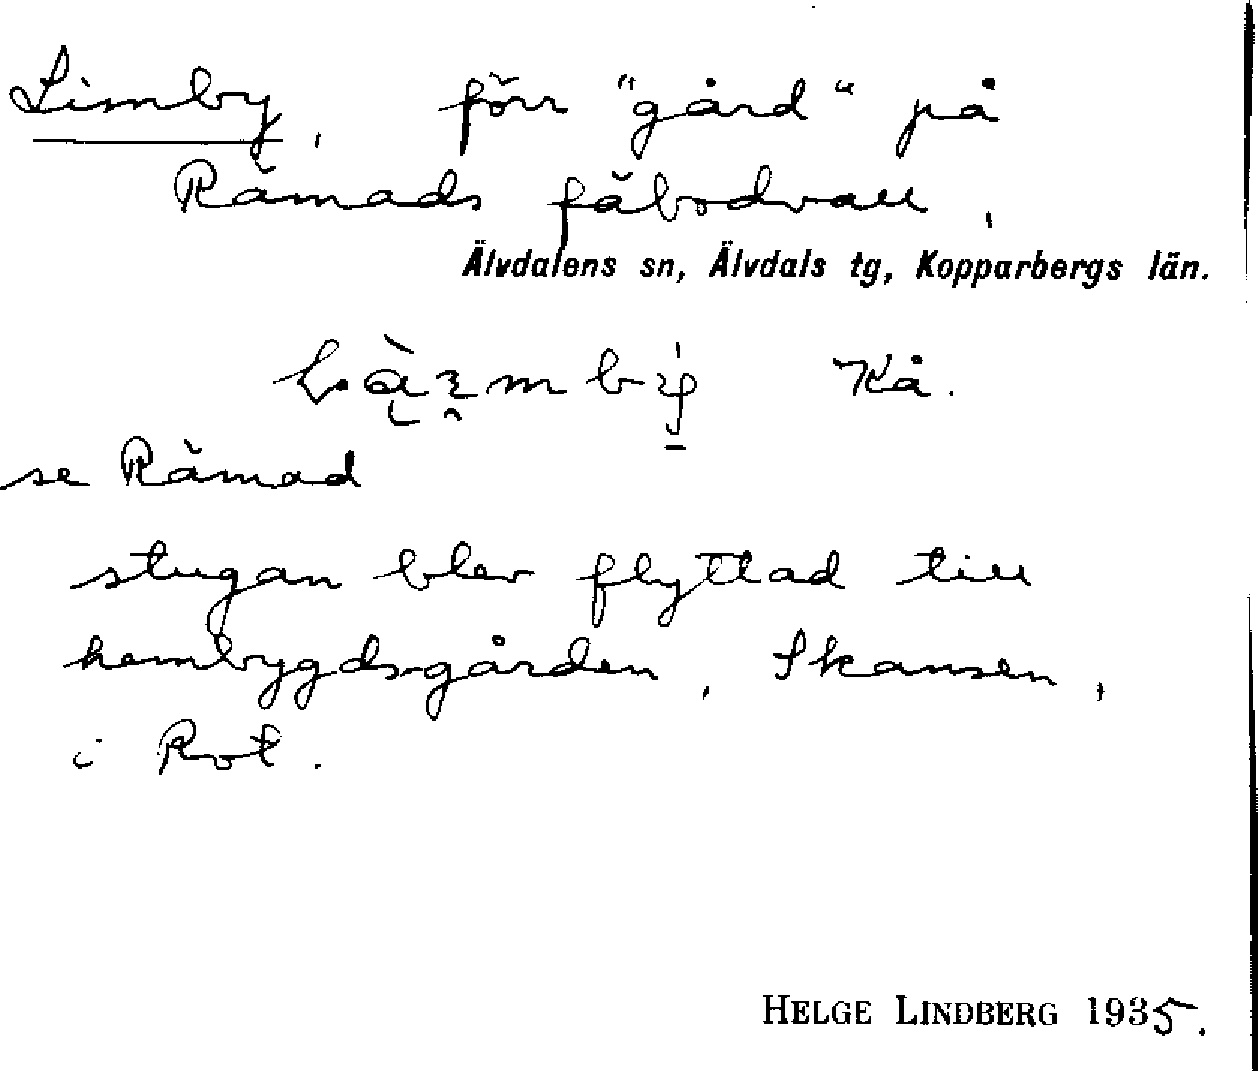 Limby, förr "gård" på
Rämads fäbodvall,
Älvdalens sn, Älvdals tg, Kopparbergs län.
Kå.
se Rämad
stugan blev flyttad till
hembygdsgården, Skansen,
i Rot.
HELGE LINDBERG 1935.